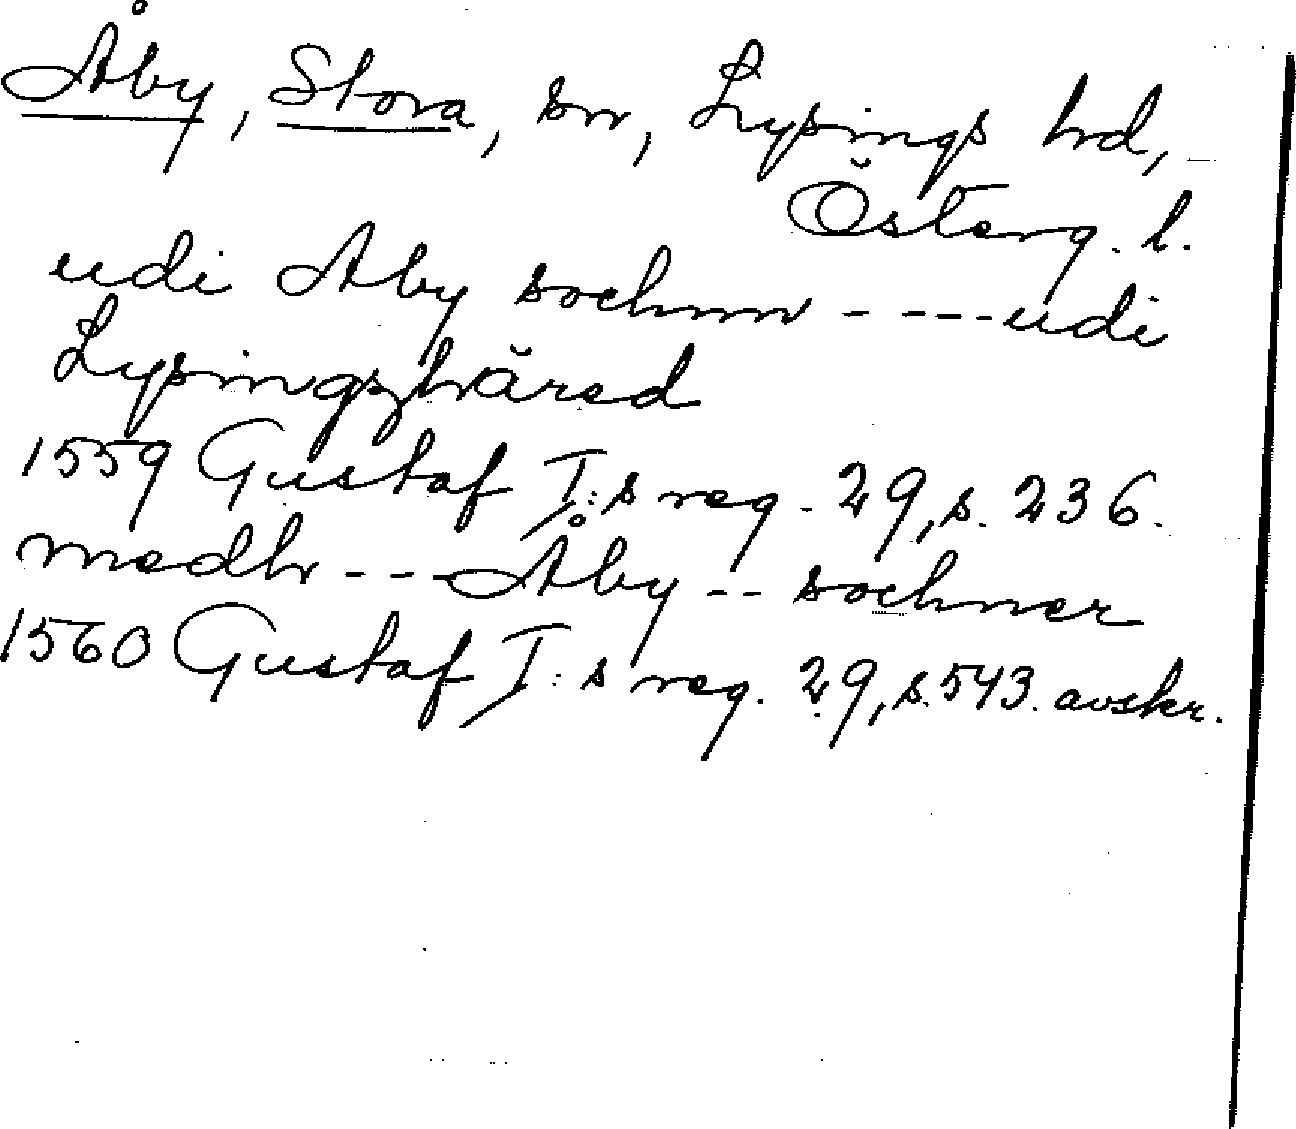 Åby, Stora, sn, Lysings hd,
Österg. l.
udi Aby sochnn - - - - udi
Lysingzhäred
1559 Gustaf I:s reg. 29, s. 236.
medh - - - Åby - - sochner
1560 Gustaf I:s reg. 29, s. 543. avskr.